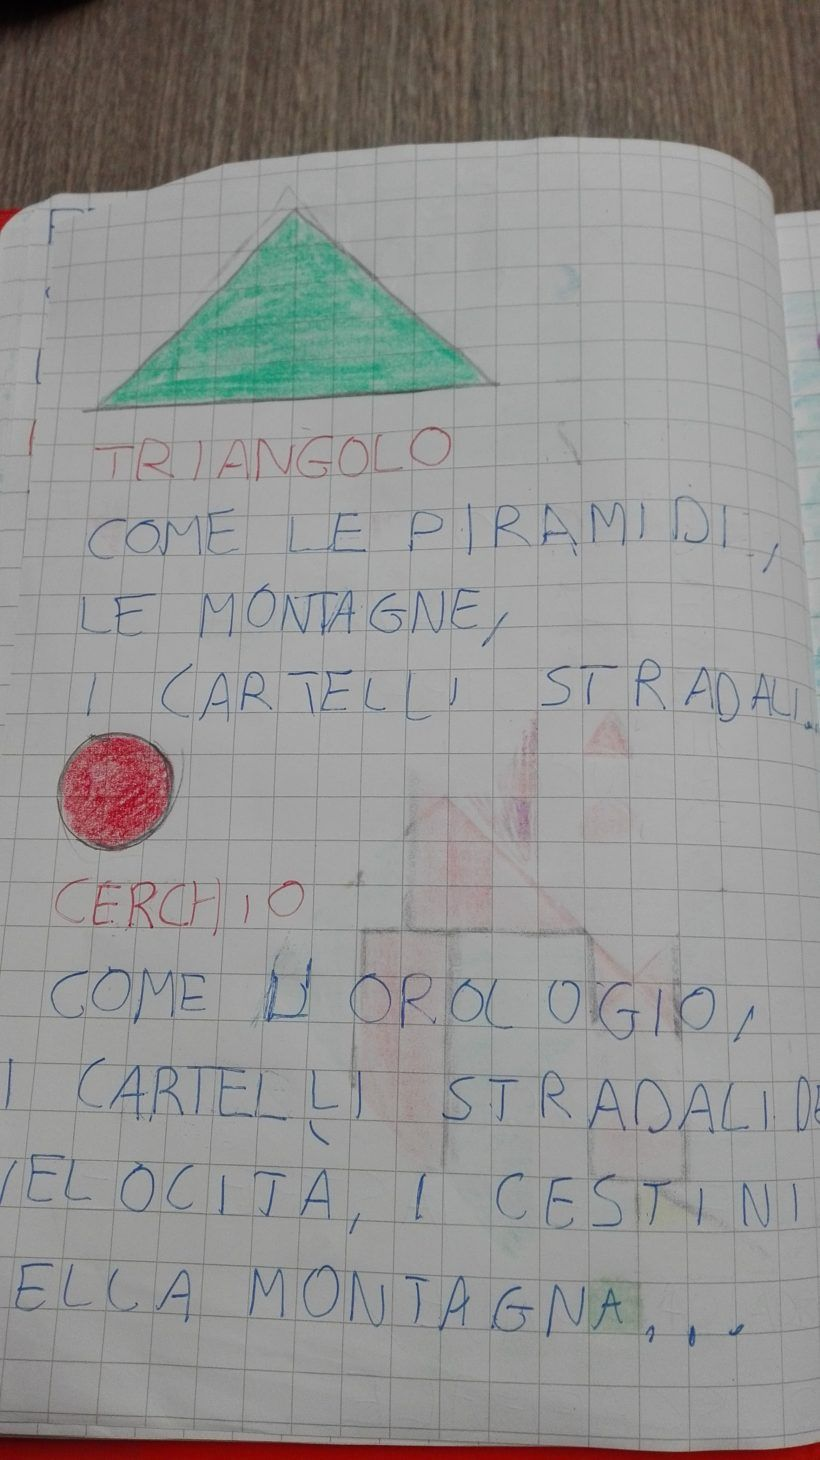 TRIANGOLO
COME LE PIRAMIDI,
LE MONTAGNE,
I CARTELLI STRADALI...
CERCHIO
COME L'OROLOGIO,
I CARTELLI STRADALI DE
VELOCITA, I CESTINI
ELLA MONTAGNA...